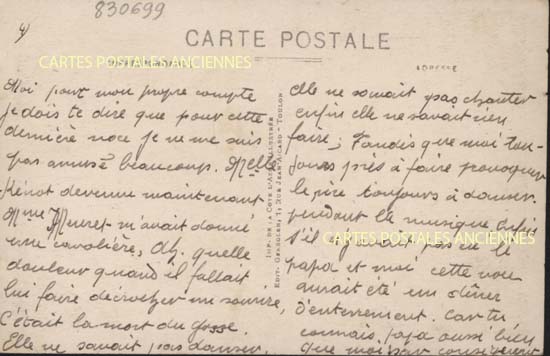 830699
4)
CARTE POSTALE
CARTES POSTALES ANCIENNES
ADRESSE
Moi pour mon propre compte
je dois te dire que pour cette
dernière noce je ne me suis
pas amusé beaucoup. Melle
devenue maintenant
Mme m'avait donné
une cavalière, Ah, quelle
douleur quand il fallait
lui faire décrocher un sourire,
C'était la mort du gosse.
Elle ne savait pas danser,
IMP.
TOULON
elle ne savait pas chanter
enfin elle ne savait rien
faire; Tandis que moi tou-
jours près à faire
le père toujours à danser
pendant la musique
s'il n'y avait pas eu le
CARTES POSTALES ANCIENNES
papa et moi cette noce
aurait été un dîner
d'enterrement. Car tu
connais, papa aussi bien
que moi